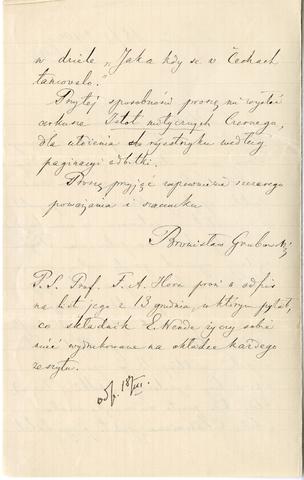 w dziele „Jak a kdy se v Čechach
tancovalo."
Przytej sposobności proszę mi wysłać
arkusze Istot mitycznych Czernego,
dla ułożenia rejestryku według
paginacyi odbitki.
Proszę przyjąć zapewnienie szczerego
poważania i szacunku
Bronisław Grabowski
P.S. Prof. F. A. Hora prosi o odpis
na list jego z 13 grudnia, w którym pytał,
co składnik E. Wende życzy sobie
mieć wydrukowane na okładce każdego
zeszytu.
odp. 18/III.